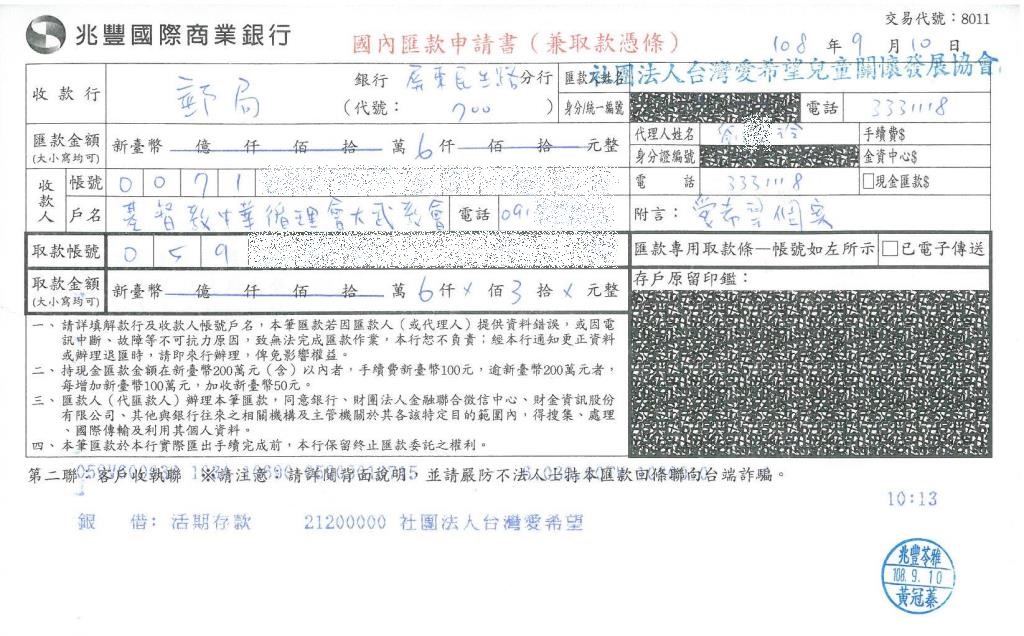 兆豐國際商業銀行
國內匯款申請書（兼取款憑條）
交易代號：8011
108 年 9 月 10 日
收款行 郵局 銀行 屏東民生路 分行
（代號： 700 ）
匯款人姓名 社團法人台灣愛希望兒童關懷發展協會
身分/統一編號 電話 3331118
匯款金額 (大小寫均可) 新臺幣 億 仟 佰 拾 萬 6 仟 佰 拾 元整
代理人姓名 手續費$
身分證編號 金資中心$
收款人 帳號 0 0 7 1
電話 3331118 □現金匯款$
戶名 基督教中華循理會大武教會 電話 091
附言： 愛希望個案
取款帳號 0 5 9
匯款專用取款條—帳號如左所示 □已電子傳送
取款金額 (大小寫均可) 新臺幣 億 仟 佰 拾 萬 6 仟 x 佰 3 拾 x 元整
存戶原留印鑑：
一、請詳填解款行及收款人帳號戶名，本筆匯款若因匯款人（或代理人）提供資料錯誤，或因電
訊中斷、故障等不可抗力原因，致無法完成匯款作業，本行恕不負責；經本行通知更正資料
或辦理退匯時，請即來行辦理，俾免影響權益。
二、持現金匯款金額在新臺幣200萬元（含）以內者，手續費新臺幣100元，逾新臺幣200萬元者，
每增加新臺幣100萬元，加收新臺幣50元。
三、匯款人（代匯款人）辦理本筆匯款，同意銀行、財團法人金融聯合徵信中心、財金資訊股份
有限公司、其他與銀行往來之相關機構及主管機關於其各該特定目的範圍內，得搜集、處理
、國際傳輸及利用其個人資料。
四、本筆匯款於本行實際匯出手續完成前，本行保留終止匯款委託之權利。
第二聯：客戶收執聯 ※請注意：請詳閱背面說明，並請嚴防不法人士持本匯款回條聯向台端詐騙。
10:13
銀 借：活期存款 21200000 社團法人台灣愛希望
兆豐苓雅
108. 9. 10
黃冠蓁